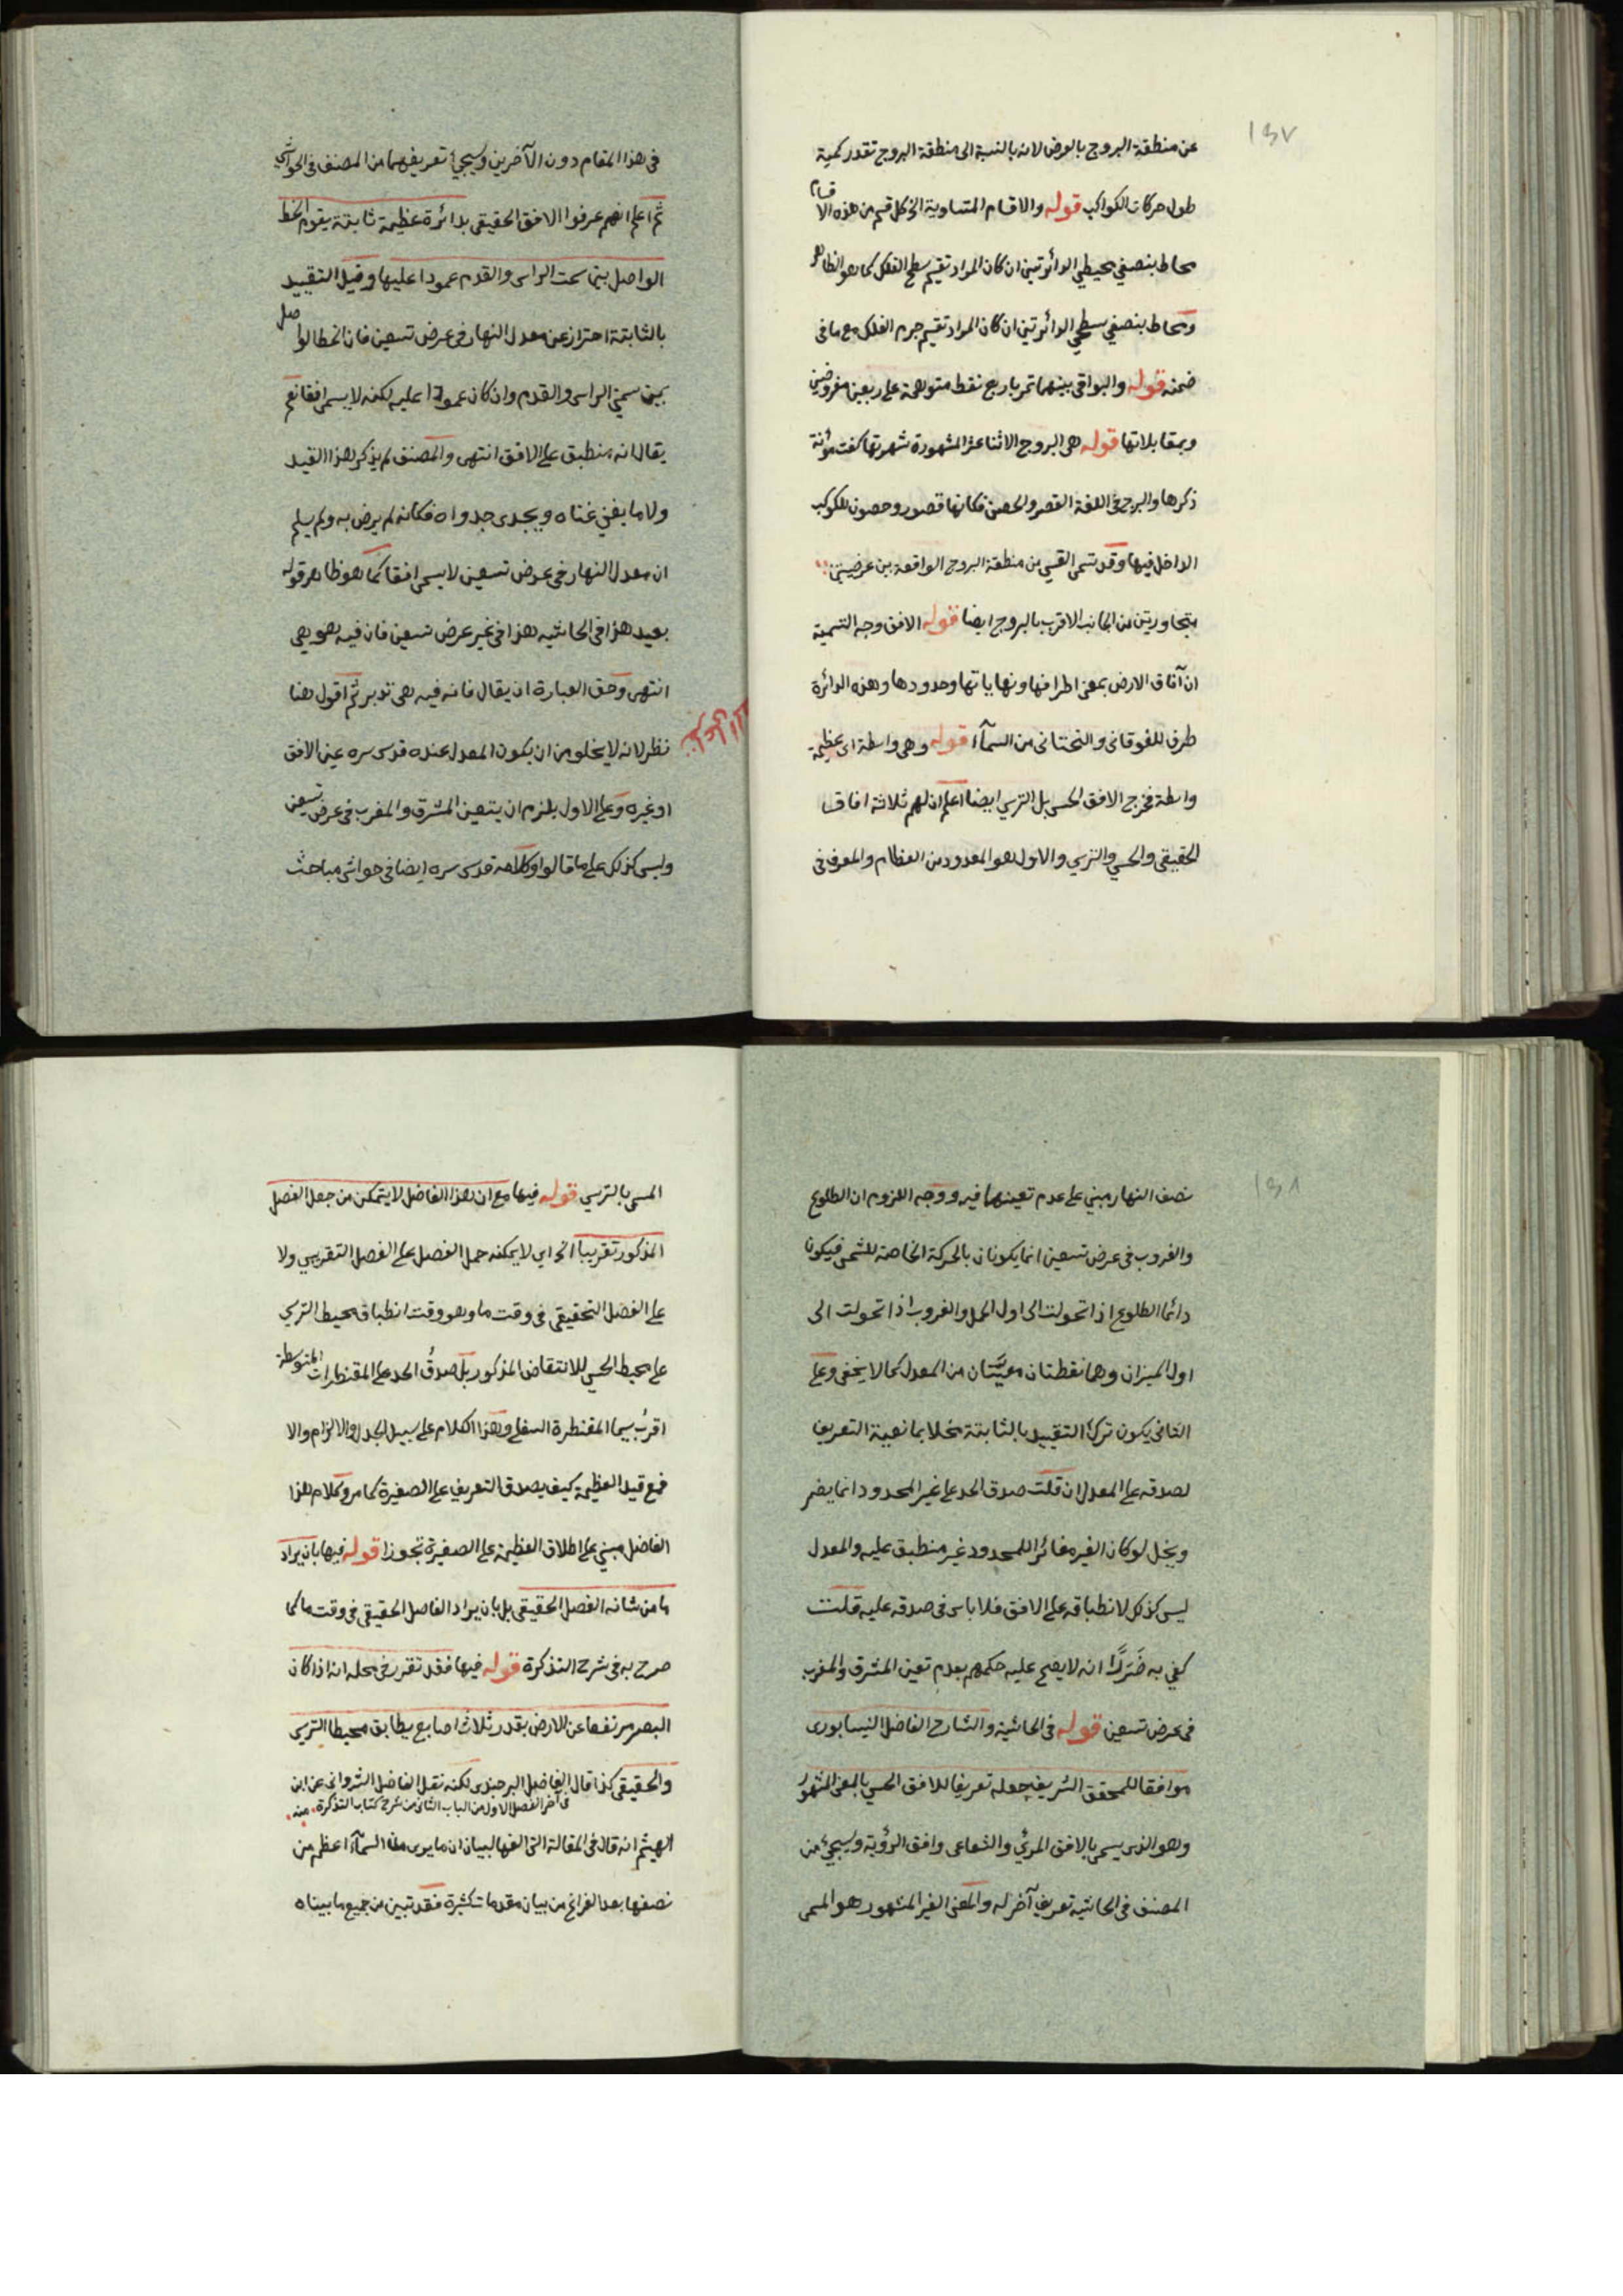 ١٣٧
عن منطقة البروج بالعرض لانه بالنسبة الى منطقة البروج تقدر كمية
طول حركات الكواكب قوله والاقسام المتساوية الخ كل قسم من هذه الاقسام
محاط بنصفي محيطي الدائرتين ان كان المراد تقسيم سطح الفلك كما هو الظاهر
ومحاط بنصفي سطحي الدائرتين ان كان المراد تقسيم جرم الفلك مع ما فى
ضمنه قوله والبواقى بينهما تمر باربع نقط متوهمة على ربعين مفروضين
وبمقابلاتها قوله هى البروج الاثنا عشر المشهورة شهرتها كفت مؤنة
ذكرها والبرج فى اللغة القصر والحصن فكانها قصور وحصون للكوكب
الداخل فيها وقد تسمى القسي من منطقة البروج الواقعة بين عرضيتين
متجاورتين من الجانب الاقرب بالبروج ايضا قوله الافق وجه التسمية
ان آفاق الارض بمعنى اطرافها ونهاياتها وحدودها وهذه الدائرة
طرف للفوقانى والتحتانى من السمآء قوله وهى واسطة اى عظيمة
واسطة فخرج الافق الحسى بل الترسي ايضا اعلم ان لهم ثلاثة افاق
الحقيقى والحسي والترسي والاول هو المعدود من العظام والمعرف فى
فى هذا المقام دون الآخرين وسيجئ تعريفهما من المصنف فى الحواشي
ثم اعلم انهم عرفوا الافق الحقيقى بدائرة عظيمة ثابتة يقوم الخط
الواصل بين سمت الراس والقدم عمودا عليها وقيل التقييد
بالثابتة احتراز عن معدل النهار فى عرض تسعين فان الخط الواصل
بين سمتي الراس والقدم وان كان عمودا عليه لكنه لا يسمى افقا نعم
يقال انه منطبق على الافق انتهى والمصنف لم يذكر هذا القيد
ولا ما يغنى غناه ويجدى جدواه فكانه لم يرض به ولم يسلم
ان معدل النهار فى عرض تسعين لا يسمى افقا كما هو ظاهر قوله
بعيد هذا فى الحاشيه هذا فى غير عرض تسعين فان فيه هو هى
انتهى وحق العبارة ان يقال فانه فيه هى تدبر ثم اقول هنا
نظر لانه لا يخلو من ان يكون المعدل عنده قدس سره عين الافق
او غيره وعلى الاول يلزم ان يتعين المشرق والمغرب فى عرض تسعين
وليس كذلك على ما قالوا وكلامه قدس سره ايضا فى حواشى مباحث
١٣٨
نصف النهار مبني على عدم تعينهما فيه ووجه اللزوم ان الطلوع
والغروب فى عرض تسعين انما يكونان بالحركة الخاصة للشمس فيكون
دائما الطلوع اذا تحولت الى اول الحمل والغروب اذا تحولت الى
اول الميزان وهما نقطتان معينتان من المعدل كما لا يخفى وعلى
الثانى يكون ترك التقييد بالثابتة مخلا بمانعية التعريف
لصدقه على المعدل ان قلت صدق الحد على غير المحدود انما يضر
ويخل لو كان الغير مغائرا للمحدود غير منطبق عليه والمعدل
ليس كذلك لانطباقه على الافق فلا باس فى صدقه عليه قلت
كفى به ضررا انه لا يصح عليه حكمهم بعدم تعين المشرق والمغرب
فى عرض تسعين قوله فى الحاشية والشارح الفاضل النيسابورى
موافقا للمحقق الشريف جعله تعريفا للافق الحسي بالمعنى المشهور
وهو الذى يسمى بالافق المرئي والشعاعى وافق الرؤية وسيجئ من
المصنف فى الحاشيه تعريف آخر له والمعنى الغير المشهور هو المسمى
المسمى بالترسي قوله فيها مع ان هذا الفاضل لا يتمكن من جعل الفصل
المذكور تقريبا الخ اى لا يمكنه حمل الفصل على الفصل التقريبي ولا
على الفصل التحقيقى فى وقت ما وهو وقت انطباق محيط الترسي
على محيط الحسي للانتقاض المذكور بل صدق الحد على المقنطرات المتوسطة
اقرب سيما المقنطرة السفلى وهذا الكلام على سبيل الجدل والالزام والا
فمع قيد العظيمة كيف يصدق التعريف على الصغيرة كما مر وكلام هذا
الفاضل مبني على اطلاق العظيمة على الصغيرة تجوزا قوله فيها بان يراد
ما من شانه الفصل الحقيقى بل بان يراد الفاصل الحقيقى فى وقت ما كما
صرح به فى شرح التذكرة قوله فيها فقد تقرر فى محله انه اذا كان
البصر مرتفعا عن الارض بقدر ثلاث اصابع يطابق محيطا الترسي
والحقيقى كذا قال الفاضل البرجندى لكنه نقل الفاضل الشروانى عن ابن
فى آخر الفصل الاول من الباب الثانى من شرح كتاب التذكرة منه
الهيثم انه قال فى المقالة التى الفها لبيان ان ما يرى من السمآء اعظم من
نصفها بعد الفراغ من بيان مقدمات كثيرة فقد تبين من جميع ما بيناه